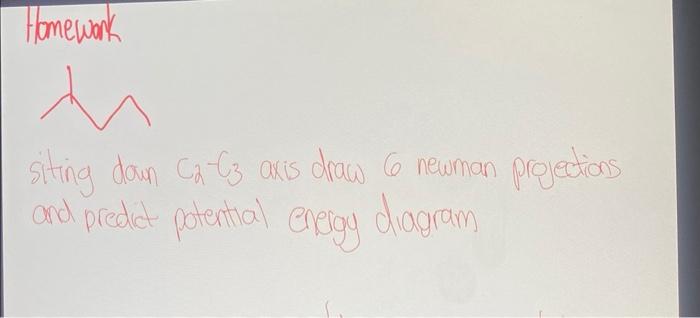 Homework
siting down C2-C3 axis draw 6 newman projections
and predict potential energy diagram